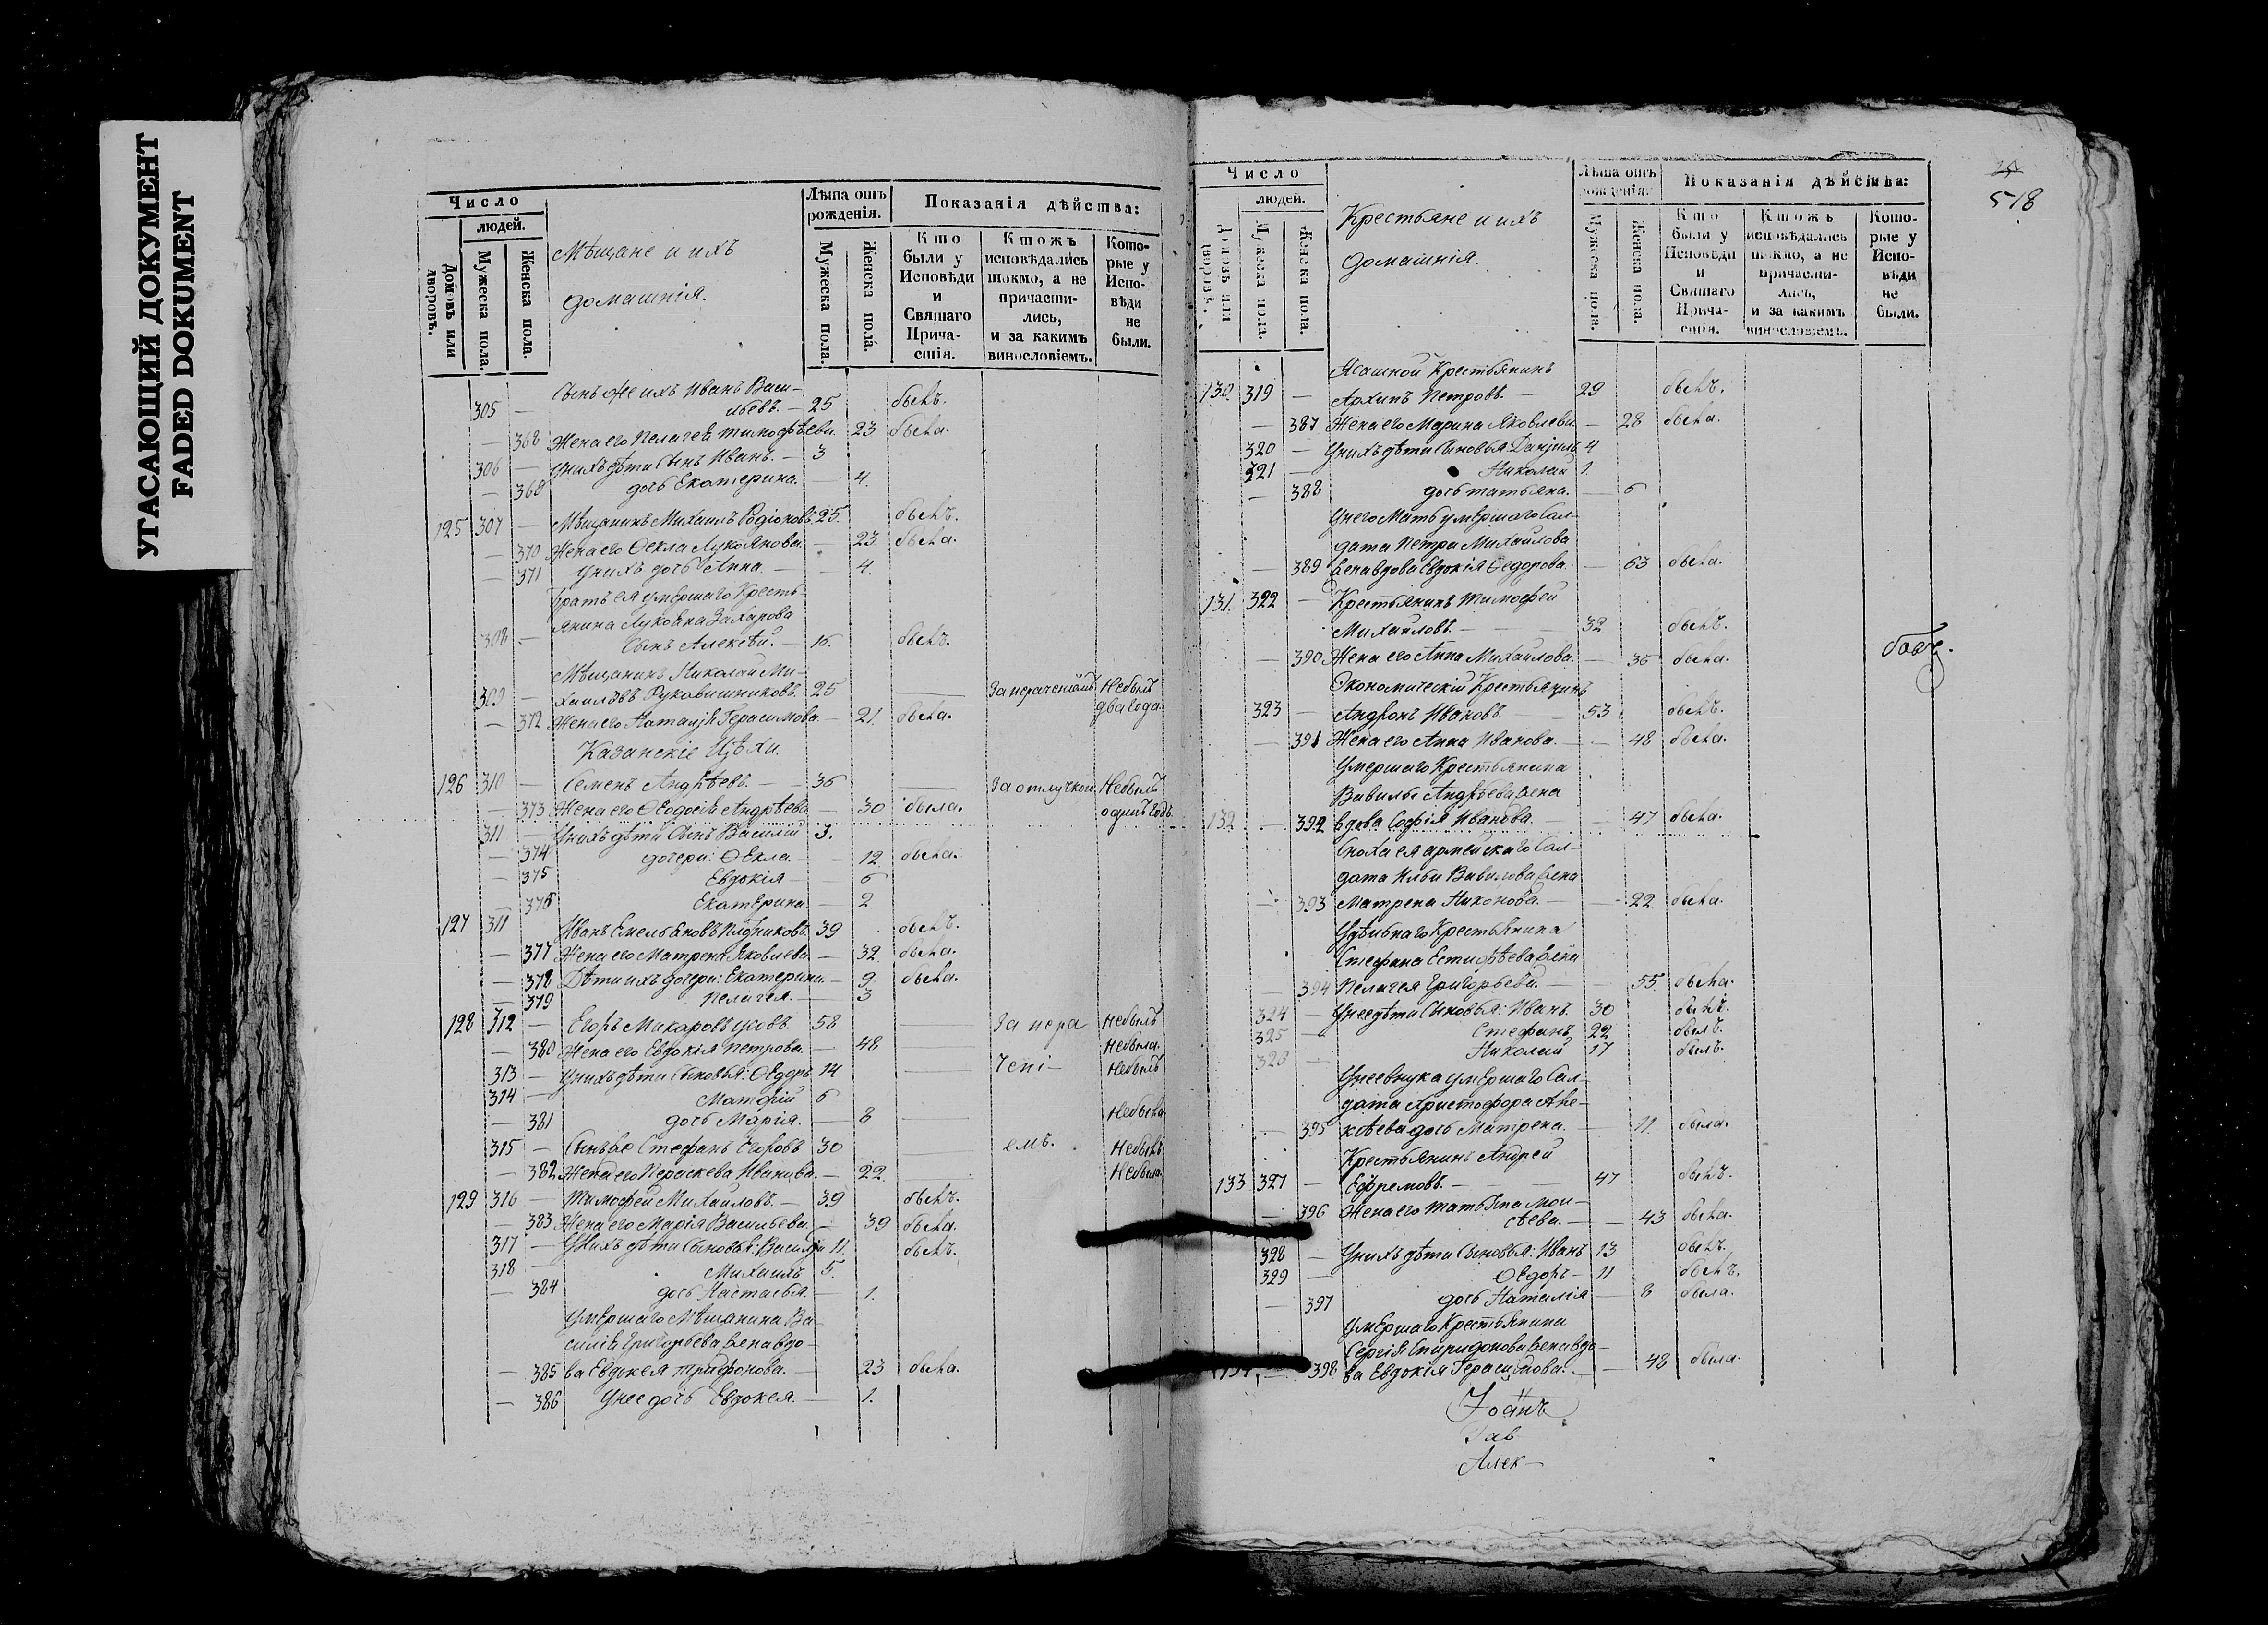 УГАСАЮЩИЙ ДОКУМЕНТ
FADED DOKUMENT
Число
людей.
Домовъ или дворовъ.
Мужеска пола.
Женска пола.
Мѣщане и ихъ
домашнія.
Лѣта отъ рожденія.
Мужеска пола.
Женска пола.
Показанія дѣйства:
Кто были у Исповѣди и Святаго Прича-стія.
Ктожъ исповѣдались токмо, а не причасти-лись, и за какимъ винословіемъ.
Кото-рые у Испо-вѣди не были.
Сынъ же ихъ Иванъ Васи-
305 — льевъ. — 25 былъ.
— 368 Жена его Пелагея Тимофѣева. 23 была.
306 — У нихъ дѣти сынъ Иванъ. — 3
— 369 дочь Екатерина. — 4.
125 307 — Мѣщанинъ Михаилъ Родіоновъ. 25. былъ.
— 370 Жена его Ѳекла Лукоянова. — 23 была.
— 371 У нихъ дочь Анна — 4.
Братъ ея умершаго Кресть-
янина Лукояна Захарова
308 — сынъ Алексѣй. — 16. былъ.
Мѣщанинъ Николай Ми-
309 — хаиловъ Рукавишниковъ. 25 — За нераченіемъ Небылъ
два года
— 372 Жена его Наталья Герасимова. — 21. была.
Казанскіе Цѣхи.
126 310 — Семенъ Андрѣевъ. — 36 — За отлучкою Небылъ
одинъ годъ
— 373 Жена его Ѳеодосія Андрѣева — 30 была.
311 — У нихъ дѣти сынъ Василій 3.
— 374 дочери: Ѳекла. — 12 была.
— 375 Евдокія — 6
— 376 Екатерина — 2
127 311 Иванъ Емельяновъ 39 былъ.
— 377 Жена его Матрена Яковлева — 32 была.
— 378 Дѣти ихъ дочери: Екатерина. — 9. была.
— 379 Пелагея. — 3
128 312 — Егоръ Макаровъ 58 — За нера Небылъ
— 380 Жена его Евдокія Петрова. — 48 — Небыла.
313 — У нихъ дѣти сыновья: Ѳедоръ 14 — чені— Небылъ
314 — Матфій 6
— 381 дочь Марія. — 8 — Небыла
315 — Стефанъ Егоровъ 30 — емъ. Небылъ
— 382 Жена его Параскева Иванова. — 22. Небыла
129 316 — Тимофей Михайловъ. — 39 былъ.
— 383 Жена его Марія Васильева — 39 была.
317 — У нихъ дѣти сыновья: Василій 11. былъ.
318 — Михаилъ 5.
— 384 дочь Настасья. — 1.
Умершаго Мѣщанина Ва-
силія Григорьева жена вдо-
— 385 ва Евдокея Трифонова. — 23 была.
— 386 У нее дочь Евдокея. — 1.
518
Число
людей.
Домовъ или дворовъ.
Мужеска пола.
Женска пола.
Крестьяне и ихъ
домашнія.
Лѣта отъ рожденія.
Мужеска пола.
Женска пола.
Показанія дѣйства:
Кто были у Исповѣди и Святаго Прича-стія.
Ктожъ исповѣдались токмо, а не причасти-лись, и за какимъ винословіемъ.
Кото-рые у Испо-вѣди не были.
Ясашной Крестьянинъ
130. 319 — Архипъ Петровъ. — 29 былъ.
— 387 Жена его Марина Яковлева. — 28 была.
320 — У нихъ дѣти сыновья Даніилъ 4
321 — Николай 1.
— 388 дочь Татьяна. — 6
У него мать умершаго Сал-
дата Петра Михайлова
— 389 жена вдова Евдокія Ѳедорова — 63 была.
131. 322 — Крестьянинъ Тимофей
Михайловъ. — 32 былъ.
— 390 Жена его Анна Михайлова. — 36 была.
Экономическій Крестьянинъ
323 — Андронъ Ивановъ. — 53 былъ.
— 391 Жена его Анна Иванова. — 48 была.
Умершаго Крестьянина
Вавилы Андрѣева жена
132 — 392 вдова Софія Иванова. — 47 была.
Сноха ея армейскаго Сал-
дата Ильи Вавилова жена
— 393 Матрена Никонова. — 22 была.
Удѣльнаго Крестьянина
Стефана Естифѣева жена
— 394 Пелагея Григорьева. — 55. была.
324 — У нее дѣти сыновья: Иванъ. 30 былъ.
325 — Стефанъ 22 былъ.
326 — Николай 17 былъ.
У нее внука умершаго Сал-
дата Христофора Але-
— 395 ксѣева дочь Матрена. — 11. была.
Крестьянинъ Андрей
133 327 — Ефремовъ. — 47 былъ.
— 396 Жена его Татьяна Мои-
сѣева. — 43 была.
328 — У нихъ дѣти сыновья: Иванъ 13 былъ.
329 — Ѳедоръ — 11 былъ.
— 397 дочь Наталія — 8 была.
Умершаго Крестьянина
Сергія Спиридонова жена вдо-
134 — 398 ва Евдокія Герасимова. — 48 была.
Іоаннъ
Гав
Алек—